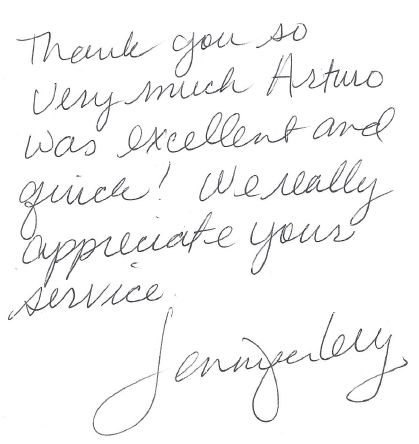 Thank you so
very much Arturo
was excellent and
quick! We really
appreciate your
service.